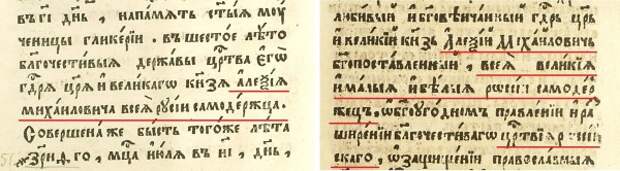 въ г҃і дн҃ь , напамѧть ст҃ыѧ моу
ченицы гликерїи . въшестое лѣто
благочестивыѧ державы цр҃тва єгѡ̀
гдⷭ҇рѧ цр҃ѧ и великагѡ кн҃зѧ Алеѯїѧ
михаиловича всеѧ̀ рꙋсїи самодержца .
Совершена же бысть тогоже лѣта
҂зрнѳ҃ го , мцⷭ҇а їюлѧ въ и҃і , дн҃ь ,
любивый и бг҃овѣнчанный гдⷭ҇рь цр҃ь
и великїй кн҃зь Алеѯїй Михайловичь
бг҃опоставленный , всеѧ̀ великїѧ
и малыѧ и бѣлыѧ рѡссїи самодер
жецъ , ѡбг҃оугодномъ правленїи и ра
ширенїи благочестивагѡ цр҃твїѧ
скаго , ѡзащищенїи православныѧ